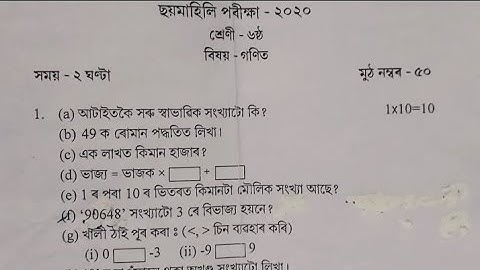 ছয়মাহিলি পৰীক্ষা - ২০২০
শ্ৰেণী - ৬ষ্ঠ
বিষয় - গণিত
সময় - ২ ঘণ্টা মুঠ নম্বৰ - ৫০
1. (a) আটাইতকৈ সৰু স্বাভাৱিক সংখ্যাটো কি? 1x10=10
(b) 49 ক ৰোমান পদ্ধতিত লিখা।
(c) এক লাখত কিমান হাজাৰ?
(d) ভাজ্য = ভাজক × □ + □
(e) 1 ৰ পৰা 10 ৰ ভিতৰত কিমানটা মৌলিক সংখ্যা আছে?
(f) ‘90648’ সংখ্যাটো 3 ৰে বিভাজ্য হয়নে?
(g) খালী ঠাই পূৰ কৰা : (<, > চিন ব্যৱহাৰ কৰি)
(i) 0 □ -3 (ii) -9 □ 9
সংখ্যাটো লিখা।